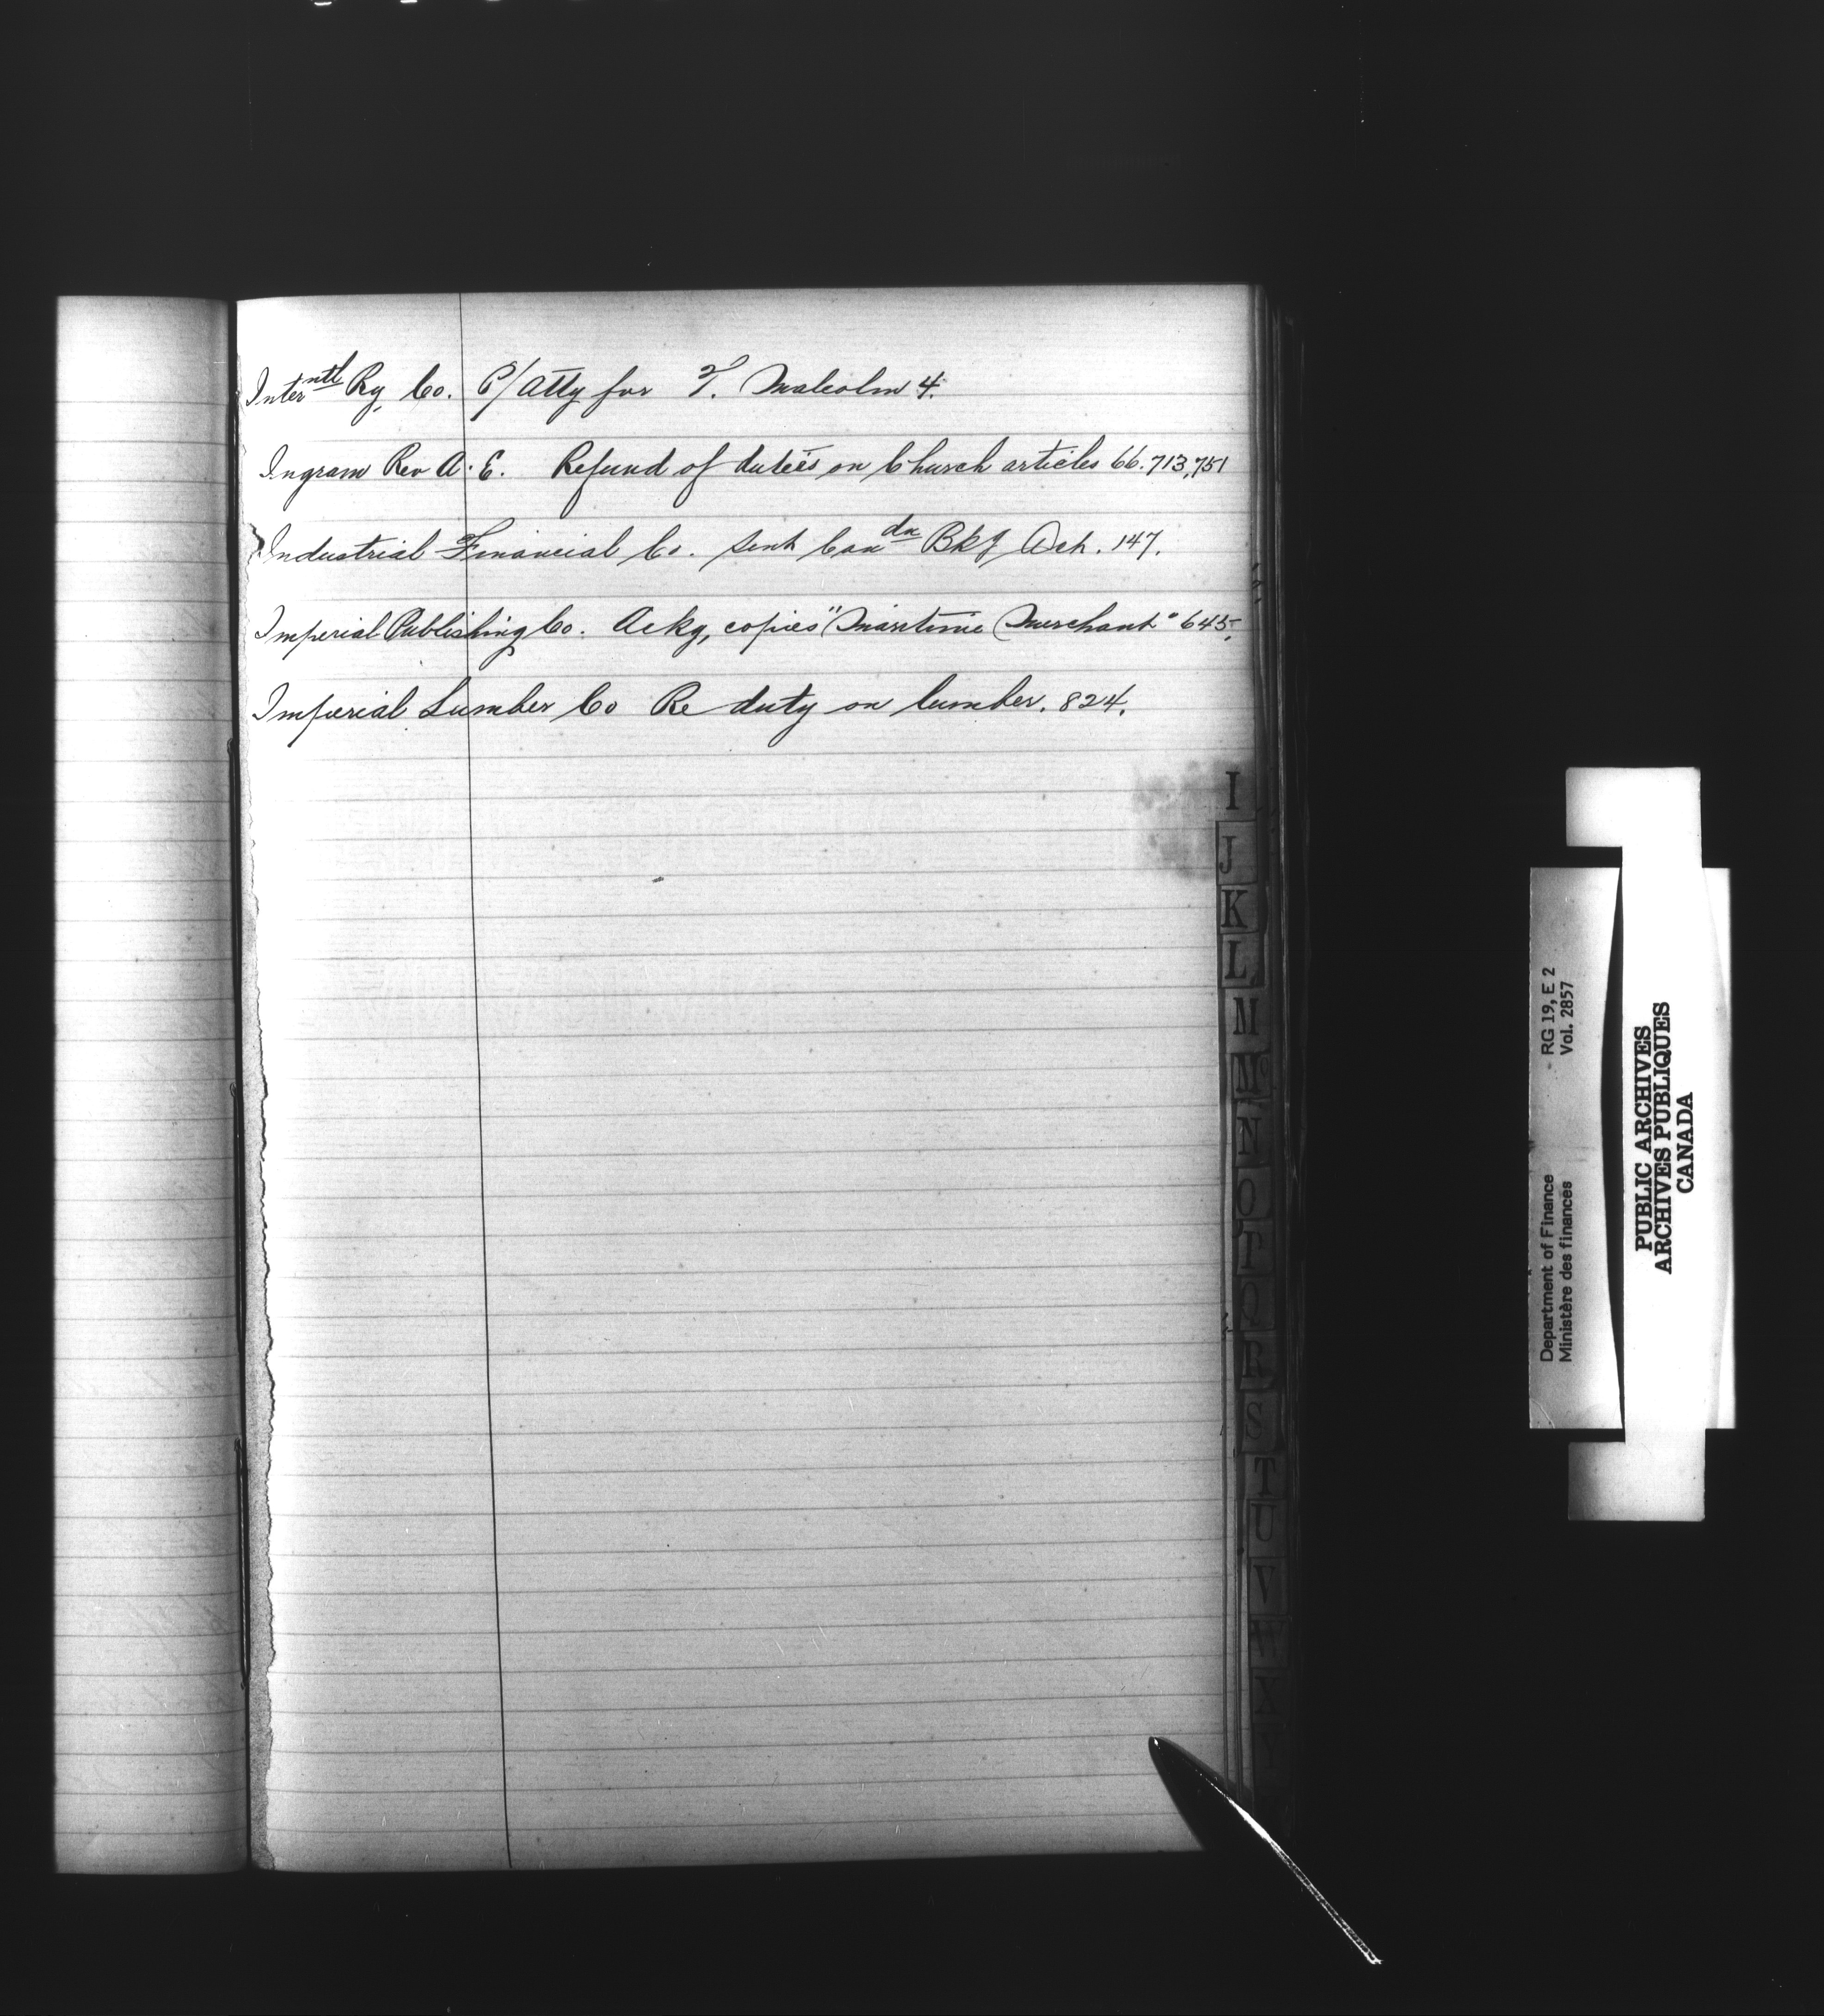 Inter^ntl Ry. Co. P/Atty for T. Malcolm 4.
Ingram Rev A. E. Refund of duties on Church articles 66.713,751
Industrial Financial Co. sent Can^dn Bkg Act. 147.
Imperial Publishing Co. Ackg, copies "Maritime Merchant" 645.
Imperial Lumber Co Re duty on lumber. 824.
I
J
K
L
M
M
N
O
Q
R
S
T
U
V
W
X
Y
Department of Finance RG 19, E 2
Ministère des finances Vol. 2857
PUBLIC ARCHIVES
ARCHIVES PUBLIQUES
CANADA